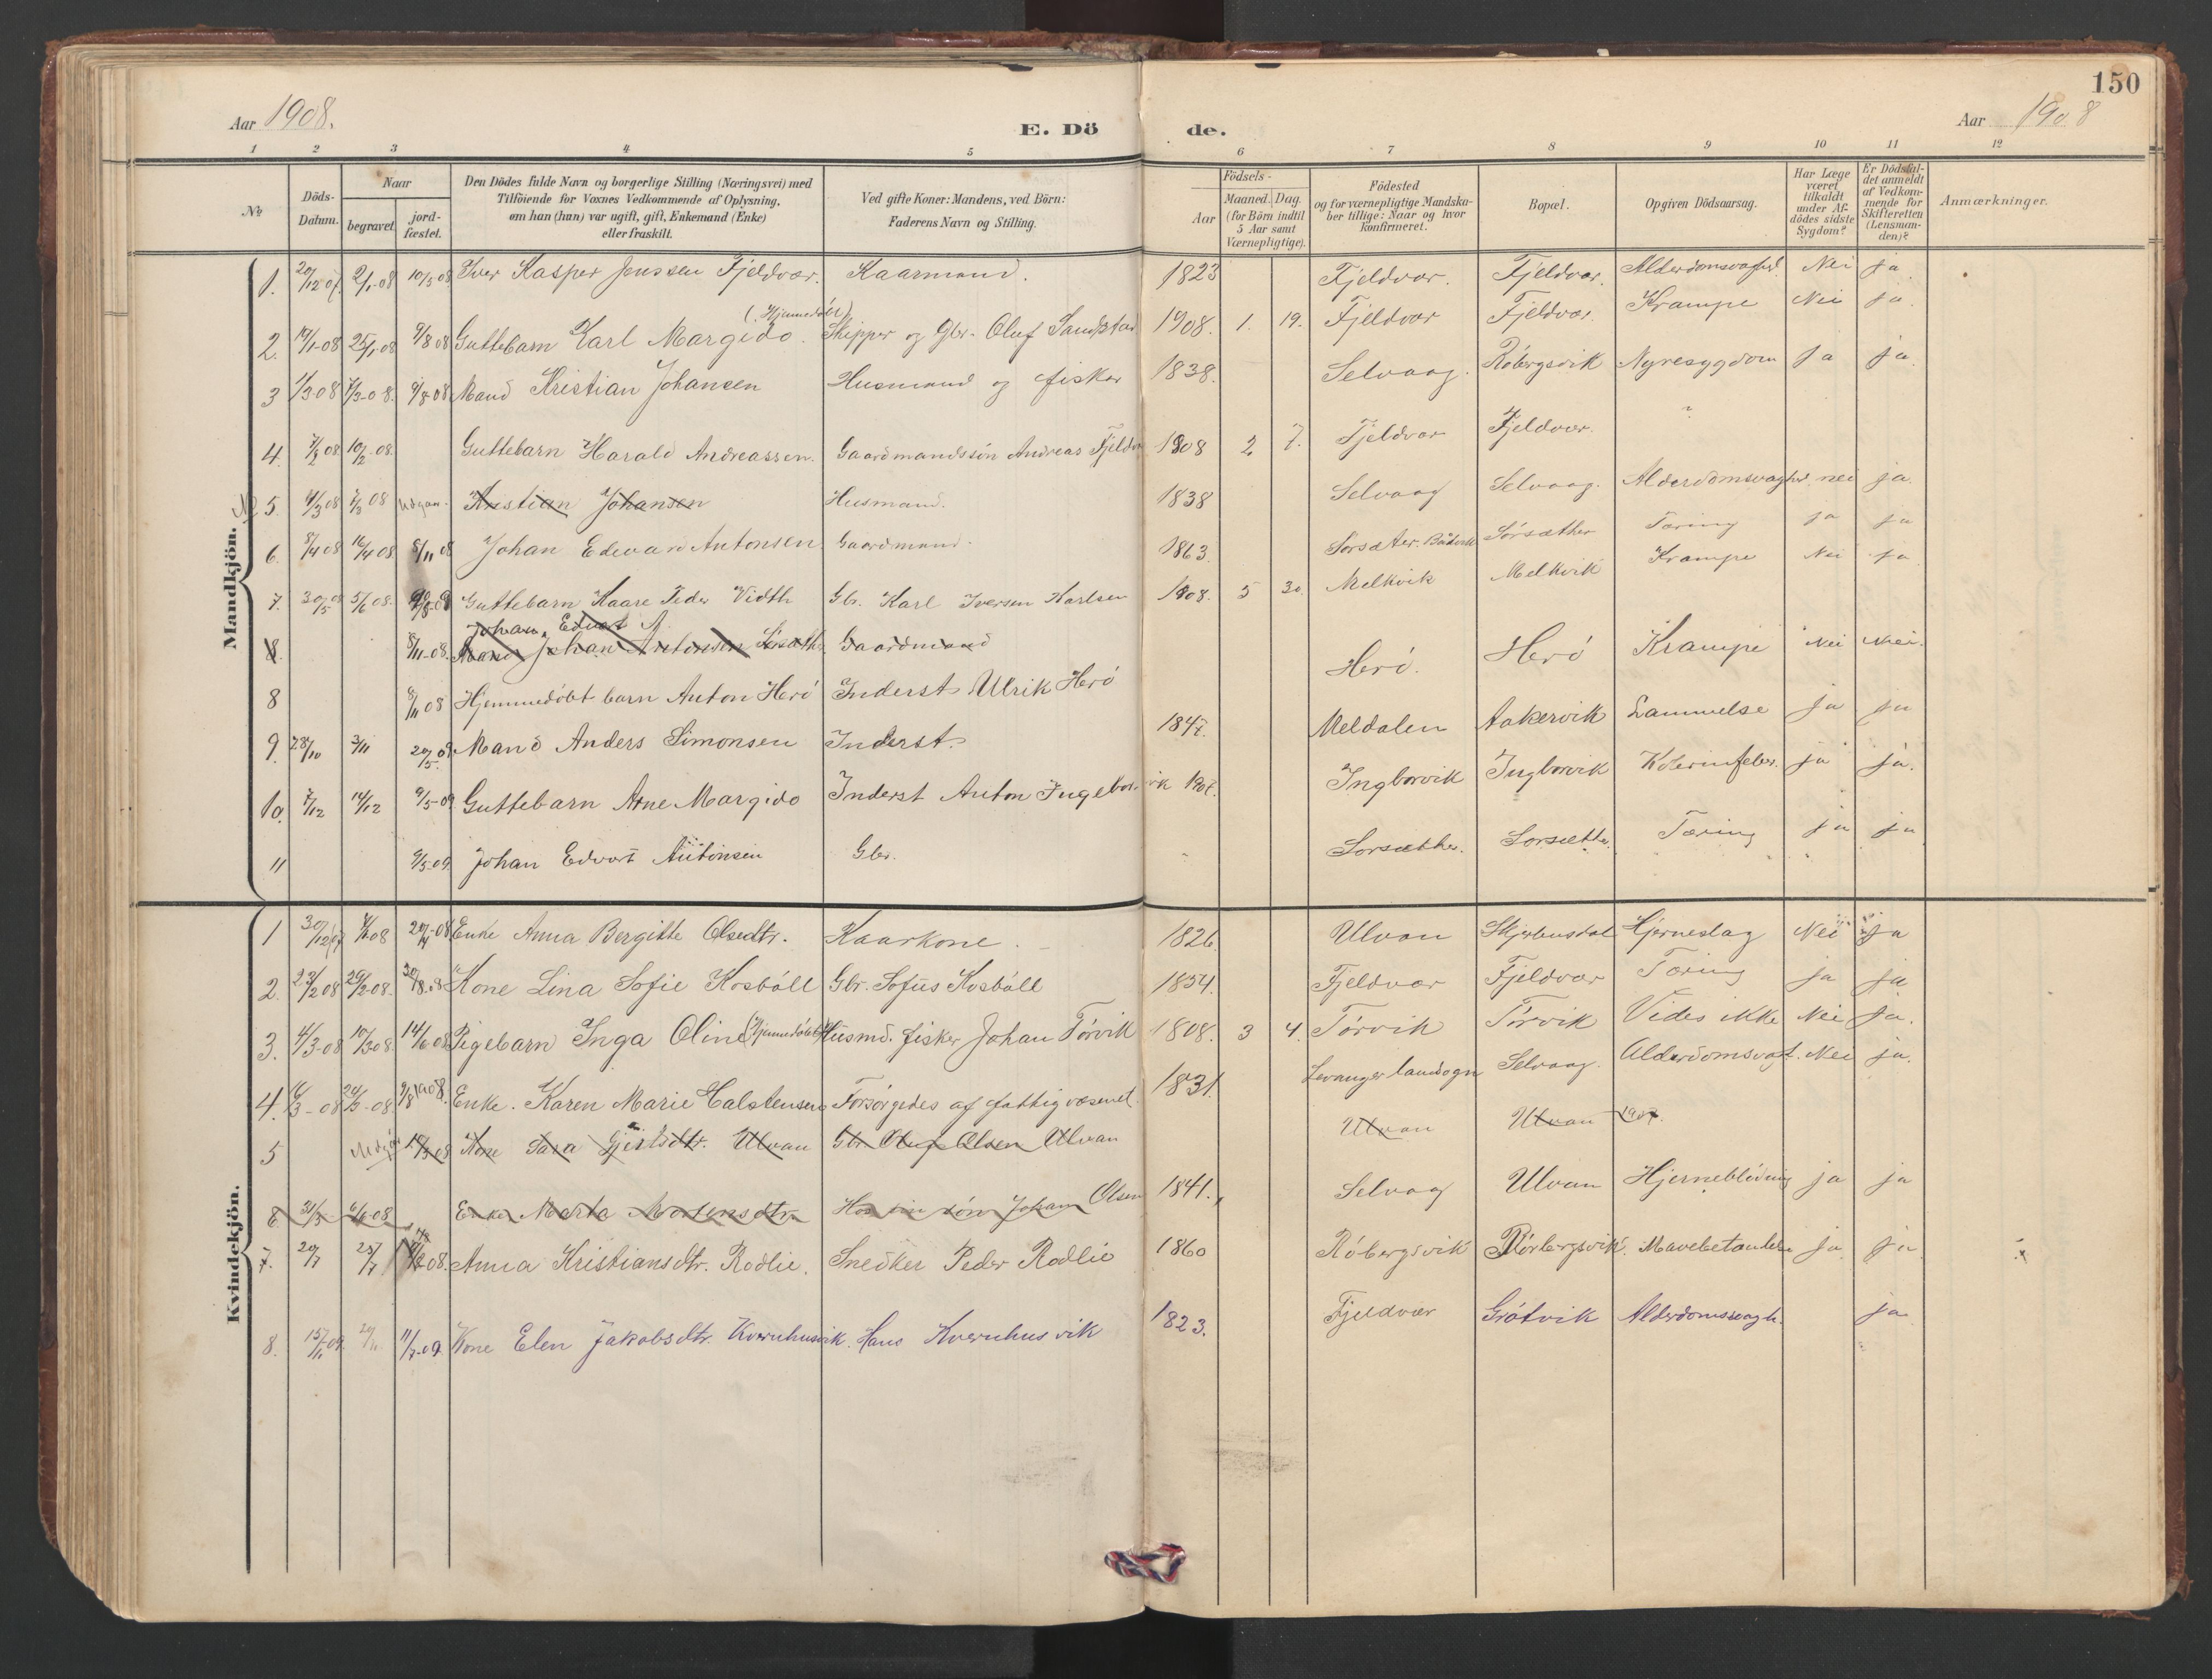 150
Aar 1908.
E. Dö de.
Aar 1908
1 2 3 4 5 6 7 8 9 10 11 12
No
Döds-Datum.
Naar begravet. jordfæstet.
Den Dödes fulde Navn og borgerlige Stilling (Næringsvei) med Tilföiende for Voxnes Vedkommende af Oplysning, om han (hun) var ugift, gift, Enkemand (Enke) eller fraskilt.
Ved gifte Koner: Mandens, ved Börn: Faderens Navn og Stilling.
Födsels- Aar Maaned. Dag. (for Börn indtil 5 Aar samt Værnepligtige).
Födested og for værnepligtige Mandskaber tillige: Naar og hvor konfirmeret.
Bopæl.
Opgiven Dödsaarsag.
Har Læge været tilkaldt under Afdödes sidste Sygdom?
Er Dödsfaldet anmeldt af Vedkommende for Skifteretten (Lensmanden)?
Anmærkninger.
Mandkjön.
1. 20/12 07. 2/1-08 10/5 08 Iver Kasper Jenssen Fjeldvær. Kaarmand. 1823 Fjeldvær. Fjeldvær. Alderdomsvaghed Nei ja
(Hjemmedöbt)
2. 19/1-08 25/1-08 9/8 08 Guttebarn Karl Margido. Skipper og Gbr. Oluf Sandstad 1908. 1. 19. Fjeldvær Fjeldvær. Krampe Nei ja.
3 1/3-08 7/3-08. 9/8-08 Mand Kristian Johansen Husmand og fisker 1838. Selvaag. Röbergsvik Nyresygdom ja ja
4. 7/2 08 10/2-08. Guttebarn Harald Andreassen. Gaardmandssön Andreas Fjeldvær 1908 2 7. Fjeldvær Fjeldvær. ?
No 5. 4/3 08 7/3 08 Udgaar. Kristian Johansen Husmand. 1838 Selvaag Selvaag. Alderdomsvaghed. nei ja.
6. 8/4 08 16/4 08 8/11 08 Johan Edevard Antonsen. Gaardmand. 1863. Sörsæter. Sörsæther Tæring ja ja
7. 30/5 08 5/6 08. Guttebarn Kaare Peder Vidth Gbr. Karl Iversen Karlsen 1908. 5 30. Melkvik Melkvik Krampe Nei ja
Johan Edvart A
8. 8/11-08. Mand Johan Antonsen Sörsæth. Gaardmand
8 8/11 08 Hjemmedöbt barn Anton Herö Inderst Ulrik Herö Herö. Herö Krampe Nei Nei.
9. 28/10 3/11 20/5 09 Mand Anders Simonsen Inderst. 1847. Meldalen Aakervik Lammelse ja ja
10. 7/12 14/12 9/5-09 Guttebarn Arne Margido Inderst Anton Ingeborvik 1907. Ingborvik Ingborvik ja ja.
11 9/5-09. Johan Edvart Antonsen Gbr. Sorsæther. Sorsæthe. Tæring ja ja
Kvindekjön.
1 30/12 07 20/4-08 Enke Anna Bergitte Olsedtr. Kaarkone. 1826. Ulvan Skjerbusdal Hjerneslag Nei ja
2. 23/2 08 29/2-08. 30/8 08 Kone Lina Sofie Kosböll Gbr. Sofus Kosböll 1854. Fjeldvær Fjeldvær Tæring ja ja
3. 4/3-08 10/3 08. 14/6 08 Pigebarn Inga Oline (Hjemmedöbt) Husmd. fisker Johan Törvik 1808. 3 4. Törvik Törvik Vides ikke Nei ja.
4. 24/3-08 9/8 1908. Enke. Karen Marie Halstensen Forsörgedes af fattigvæsenet. 1831. Levanger landsogn Selvaag. Alderdomsvagh. Nei ja.
5 Udgaar Kone Sara Gjertsdtr. Ulvan Gbr. Oluf Olsen Ulvan Ulvan Ulvan 1907.
6 31/5 6/6-08 Enke Marta Mortensdtr. Hos sin sön Johan Olsen 1841. Selvaag Ulvan Hjerneblödning ja ja
7. 20/7 25/7 08. Anna Kristiansdtr. Rodlie. Snedker Peder Rodlie 1860 Röbergsvik Rörbergsvik. Mavebetændelse ja. ja.
8. 15/11 09. 20/11 11/7-09. Kone Elen Jakobsdtr. Kvernhusvik. Hans Kvernhusvik 1823. Fjeldvær Grötvik Alderdomssvagh. ja